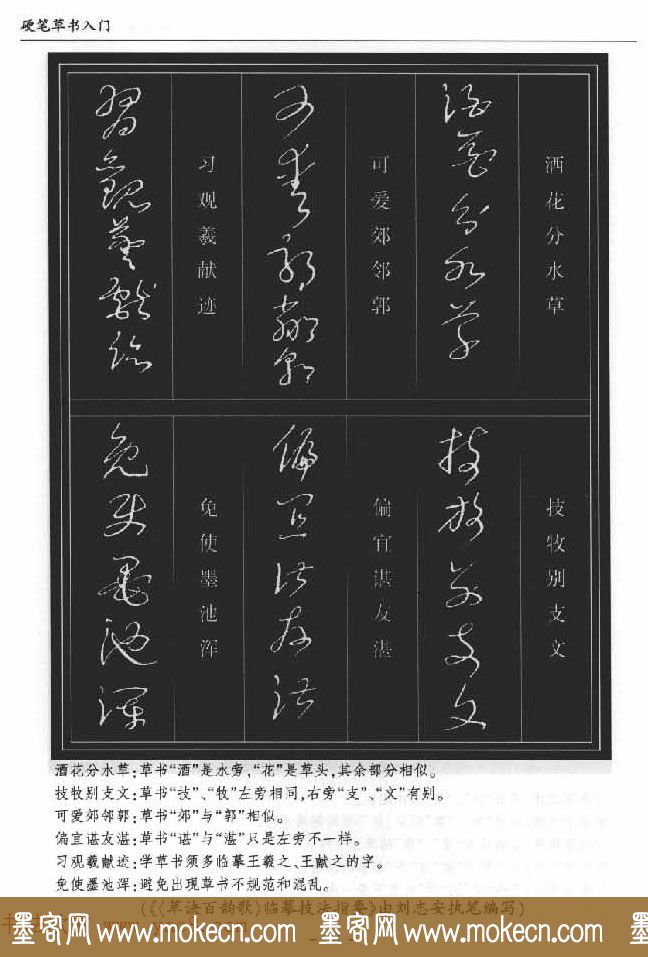 硬笔草书入门
酒花分水草
酒花分水草
可爱郊邻郭
可愛郊鄰郭
习观羲献迹
習觀羲獻迹
技牧别支文
技牧别支文
偏宜谌友湛
偏宜谌友湛
免使墨池浑
免使墨池渾
酒花分水草:草书“酒”是水旁、“花”是草头,其余部分相似。
技牧别支文:草书“技”、“牧”左旁相同,右旁“支”、“文”有别。
可爱郊邻郭:草书“郊”与“郭”相似。
偏宜谌友湛:草书“谌”与“湛”只是左旁不一样。
习观羲献迹:学草书须多临摹王羲之、王献之的字。
免使墨池浑:避免出现草书不规范和混乱。
(《〈草诀百韵歌〉临摹技法指要》由刘志安执笔编写)
墨客网 www.mokecn.com 墨客网 www.mokecn.com 墨客网